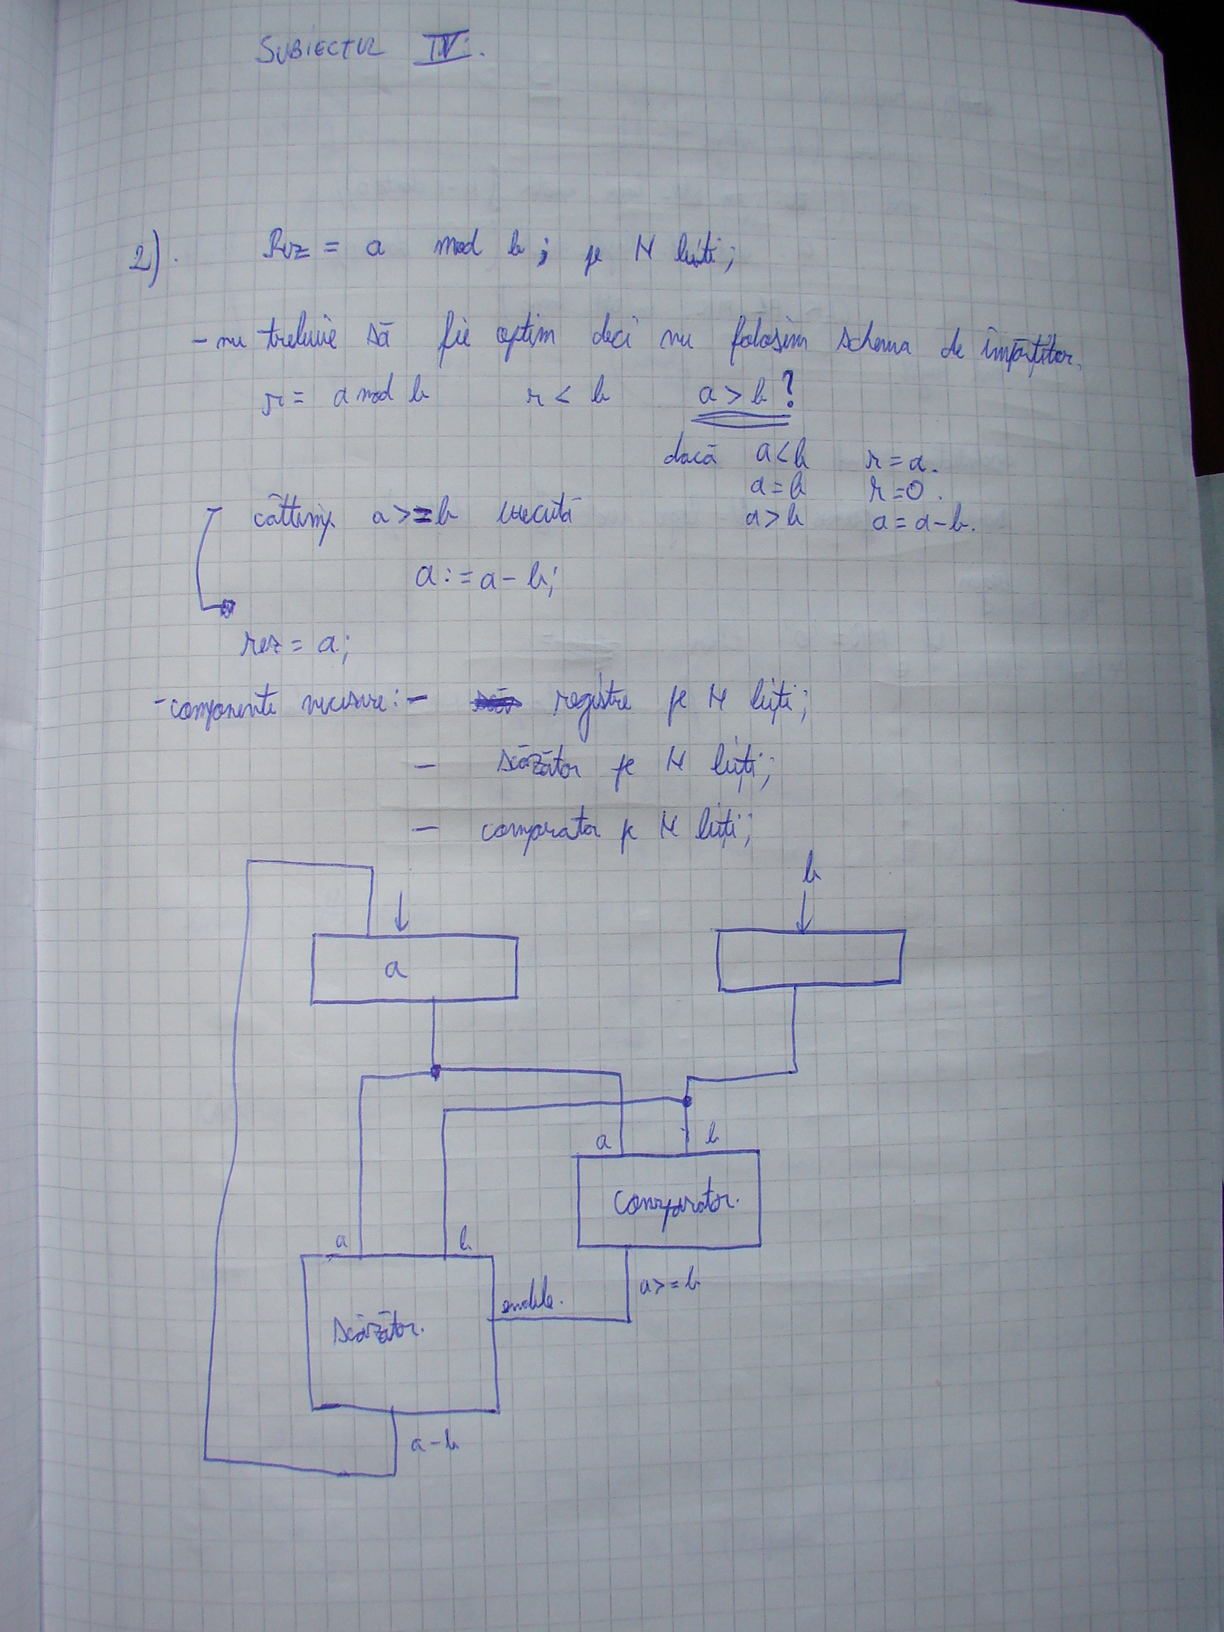 SUBIECTUL IV.
2). Rez = a mod b ; pe N biți;
- nu trebuie să fie optim deci nu folosim schema de împărțitor.
r = a mod b r < b a > b ?
dacă a<b r=a.
a=b r=0.
câttimp a>=b execută a>b a=a-b.
a:=a-b;
rez = a;
-componente necesare: - registre pe N biți;
- scăzător pe N biți;
- comparator pe N biți;
b
a
a b
Comparator.
a b
a>=b
enable.
Scăzător.
a-b